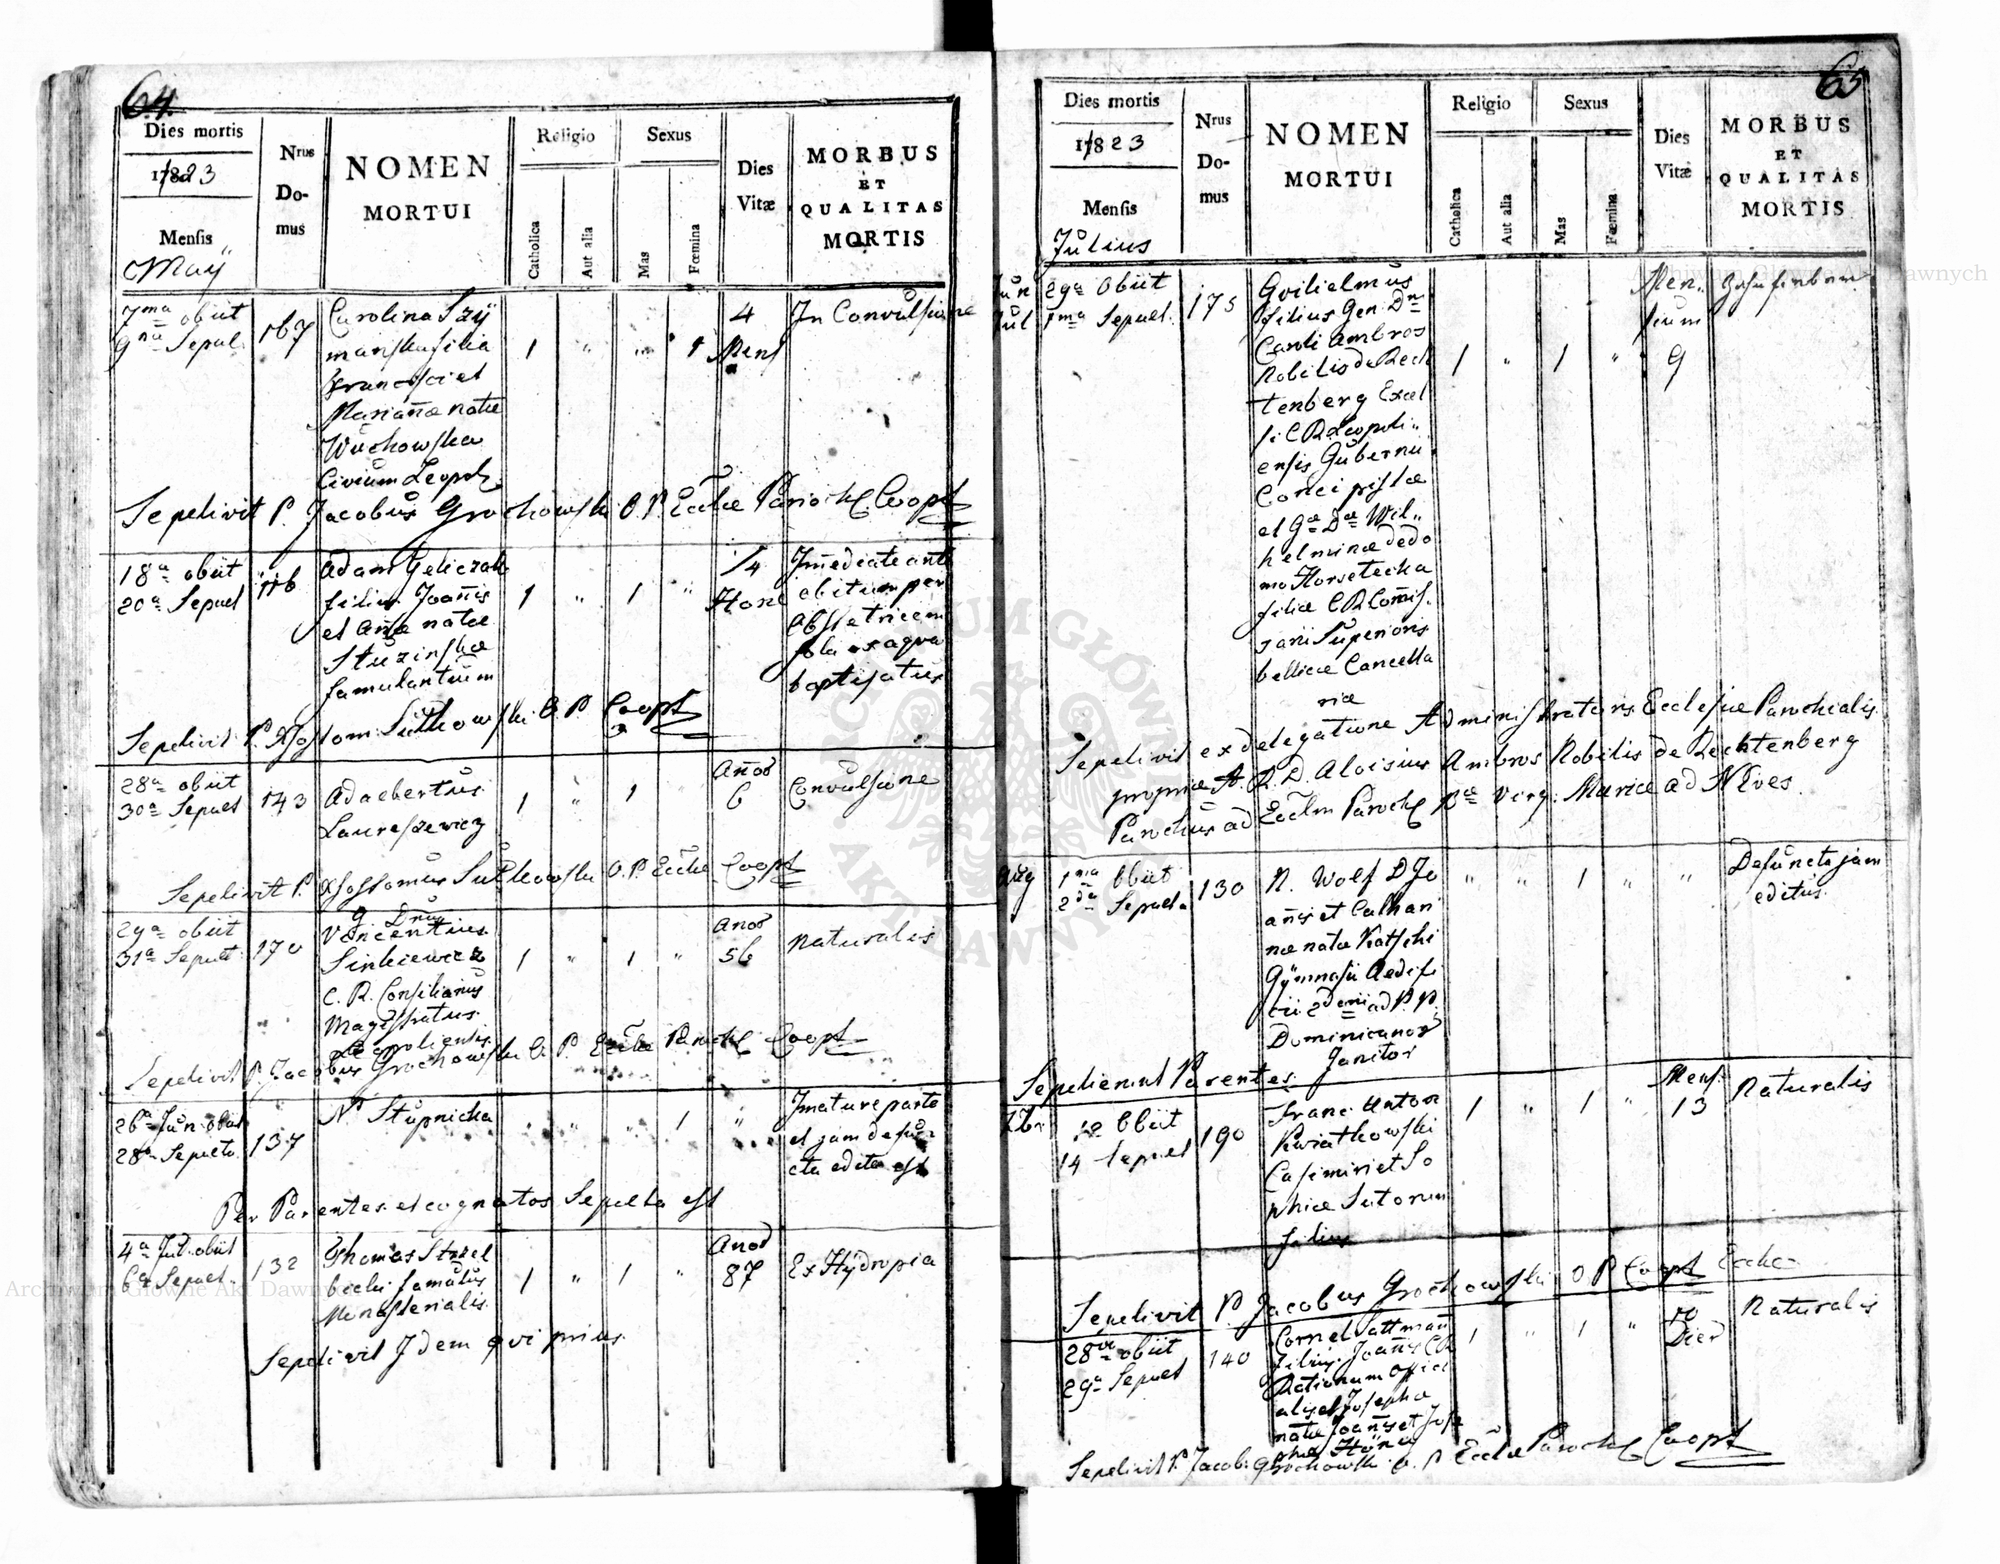 64.
Dies mortis
1823
Mensis
Maÿ
Nrus
Do-
mus
NOMEN
MORTUI
Religio
Catholica
Aut alia
Sexus
Mas
Fœmina
Dies
Vitæ
MORBUS
ET
QUALITAS
MORTIS
7ma obiit
9na Sepul.
167
Carolina Szÿ
manska filia
Francisci et
Mariañæ natæ
Wuchowska
Civium Leopol.
1 " " 1
4
Mens
In Convulsione
Sepelivit P. Jacobus Grochowski O. P. Eccłæ Paroch. Coopt
18a obiit
20a Sepuel
116
Adam Geliczak
filius Joañis
et Añæ natæ
Stuzinskæ
famulantium
1 " 1 "
1/4
Horæ
Imediate ante
obitum per
obstetricem
sola ex aqua
baptisatus
Sepelivit P. Xsostom: Sutkowski O. P. Coopt
28a obiit
30a Sepuet
143
Adaebertus
Laureszewicz
1 " 1 "
Años
6
Convulsione
Sepelivit P. Xsostomus Sutkowski O. P. Eccłæ Coopt
29a obiit
31a Sepult.
170
G. Dnus
Vincentius
Sinkiewicz
C. R. Consilianus
Magistratus
Leopoliensis
1 " 1 "
Anos
56
Naturalis
Sepelivit P. Jacobus Grochowski O. P. Eccłæ Paroch Coopt
26a Jun. obiit
28a Sepulta
137
N. Stupnicka
" " " 1
"
Imature parto
et jam defun
cta edita est
Per Parentes et cognatos Sepulta est
4a Jul. obiit
6a Sepuet.
132
Thomas Strzel
becki famulus
Monasterialis
1 " 1 "
Anos
87
Ex Hÿdropia
Sepelivit Idem qui prius.
65
Dies mortis
1823
Mensis
Julius
Nrus
Do-
mus
NOMEN
MORTUI
Religio
Catholica
Aut alia
Sexus
Mas
Fœmina
Dies
Vitæ
MORBUS
ET
QUALITAS
MORTIS
Jun 29a Obiit
Jul 1ma Sepuet.
175
Guilielmus
filius Gen. Dni
Caroli Ambros
Nobilis de Rech
tenberg Excel
si C R Leopoli„
ensis Gubernii
Concipistæ
et Gæ Dæ Wil„
helminæ de do
mo Horsetecka
filiæ C R Comis.
sarii Superioris
bellicæ Cancella
riæ
1 " 1 "
Men„
sium
9
Sepelivit ex delegatione Administratoris Ecclesiæ Parochialis
propriæ A. R. D. Aloisius Ambros Nobilis de Rechtenberg
Parochus ad Ecclm Paroch Bæ Virg: Mariæ ad Nives.
Aug 1ma Obiit
2da Sepuet.
130
N. Wolf D Jo
añis et Cathari
næ natæ Kratschi
Gÿmnasii Aedifi
cii 2deni ad P. P.
Dominicanos
Janitor
" " 1 "
"
Defuncte jam
editus
Sepelierunt Parentes
7br 12 Obiit
14 Sepuel
190
Franc. Anton
Kwiatkowski
Casimiri et So
phiæ Sutorum
filius
1 " 1 "
Mens.
13
Naturalis
Sepelivit P. Jacobus Grochowski O P Coopt Eccłæ
28va obiit
29a Sepuet
140
Cornel Sattmañ
filius Joañis C R
Rationum Offici
alis et Josepha
natæ Joañis et Jose
phæ Höna
1 " 1 "
10
Dies
Naturalis
Sepelivit P. Jacob. Grochowski O. P Eccłæ Paroch Coopt
ARCHIWUM GŁÓWNE AKT DAWNYCH
Archiwum Główne Akt Dawnych
Archiwum Główne Akt Dawnych